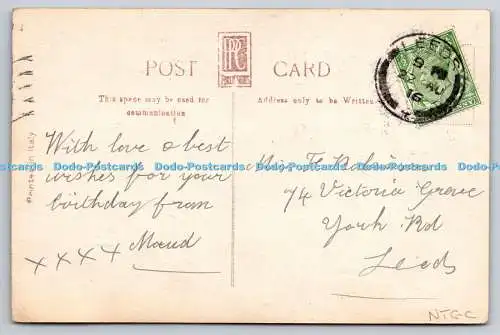 RPPC
POST CARD
This space may be used for
communication
Address only to be Written
LEEDS
AU
16
2
Printed in Italy
With love & best
wishes for your
birthday from
Maud
x x x x
Miss
74 Victoria Grove
York Rd
Leeds
NTGC
Dodo-Postcards Dodo-Postcards Dodo-Postcards Dodo-Postcards Dodo-Postcards